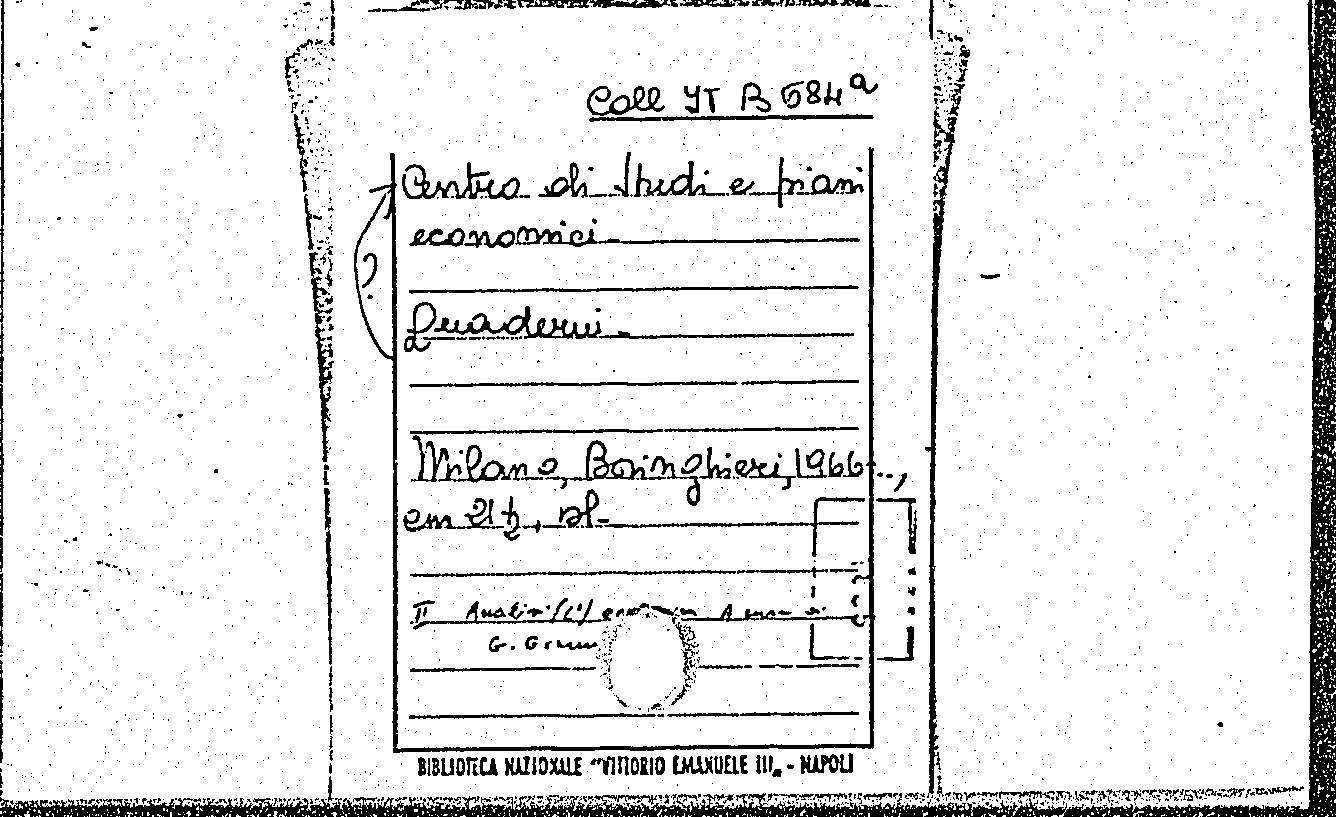 Coll IT B 684ª
Centro di Studi e piani
economici.
?
Quaderni.
Milano, Boringhieri, 1966-..,
cm 21½, sl.
II Analisi (L')
G.
BIBLIOTECA NAZIONALE "VITTORIO EMANUELE III„ - NAPOLI